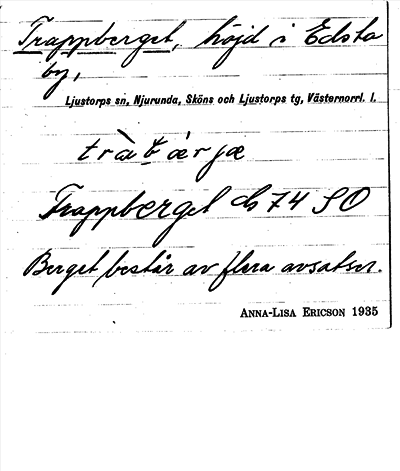 Trappberget, höjd i Edsta
by,
Ljustorps sn, Njurunda, Sköns och Ljustorps tg, Västernorrl. l.
Trappberget 74 SO
Berget består av flera avsatser.
ANNA-LISA ERICSON 1935